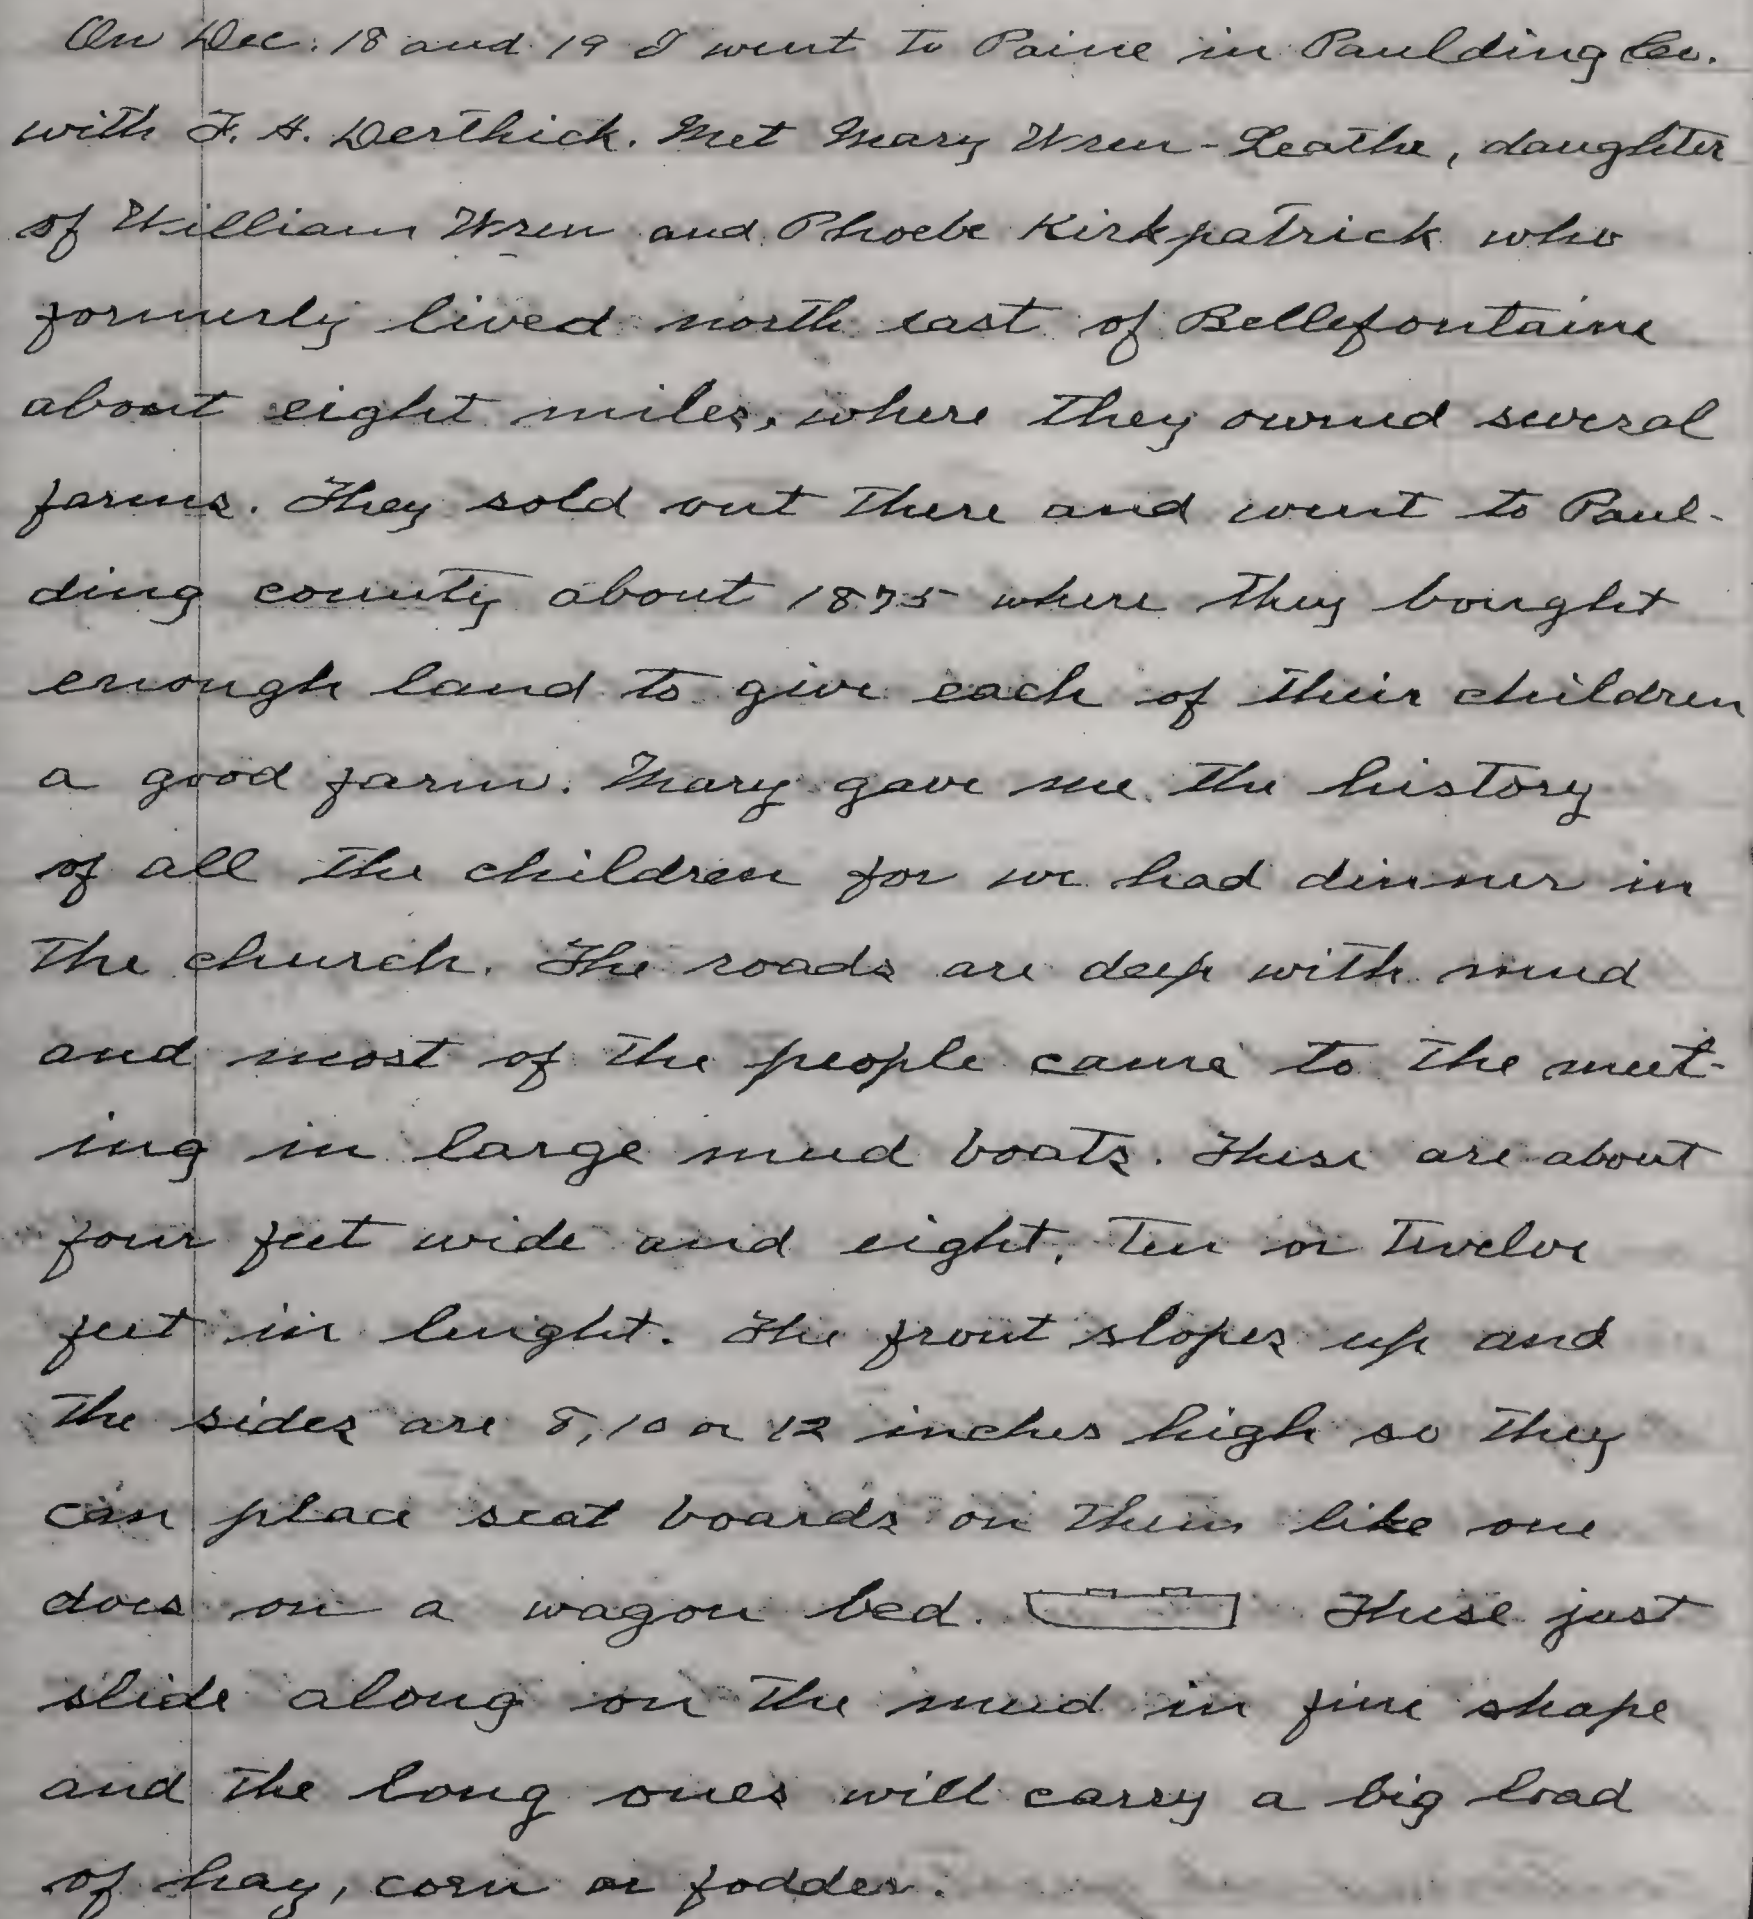 On Dec. 18 and 19 I went to Paine in Paulding Co.
with F. A. Derthick. Met Mary Wren-Leathe, daughter
of William Wren and Phoebe Kirkpatrick who
formerly lived north east of Bellefontaine
about eight miles, where they owned several
farms. They sold out there and went to Paul-
ding county about 1875 where they bought
enough land to give each of their children
a good farm. Mary gave me the history
of all the children for we had dinner in
the church. The roads are deep with mud
and most of the people came to the meet-
ing in large mud boats. These are about
four feet wide and eight, ten or twelve
feet in lenght. The front slopes up and
the sides are 8, 10 or 12 inches high so they
can place seat boards on them like one
does on a wagon bed. These just
slide along on the mud in fine shape
and the long ones will carry a big load
of hay, corn or fodder.